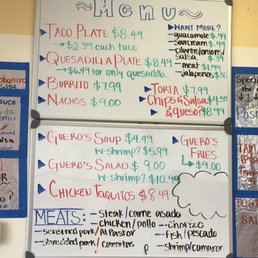 ~Menu~
TACO PLATE $8.49
→$2.39 each taco
QUESADILLA PLATE $8.49
→$6.49 for only quesadilla
BURRITO $7.99
NACHOS $9.00
*WANT MORE?
guacamole $.99
sourcream $.99
cilantro/onions/
salsa $.39
meat $1.99
jalapeños $.50
TORTA $7.99
Chips & Salsa $4.50
& queso $8.99
GUERO'S SOUP $4.99
w/ shrimp? $5.99
GUERO'S SALAD $9.00
w/ shrimp? $10.99
CHICKEN TAQUITOS $8.49
GUERO'S
FRIES
$9.00
MEATS:
-steak/carne asada
-chicken/pollo
-chorizo
-seasoned pork/Al Pastor
-fish/pescado
-shredded pork/carnitas
-shrimp/camaron